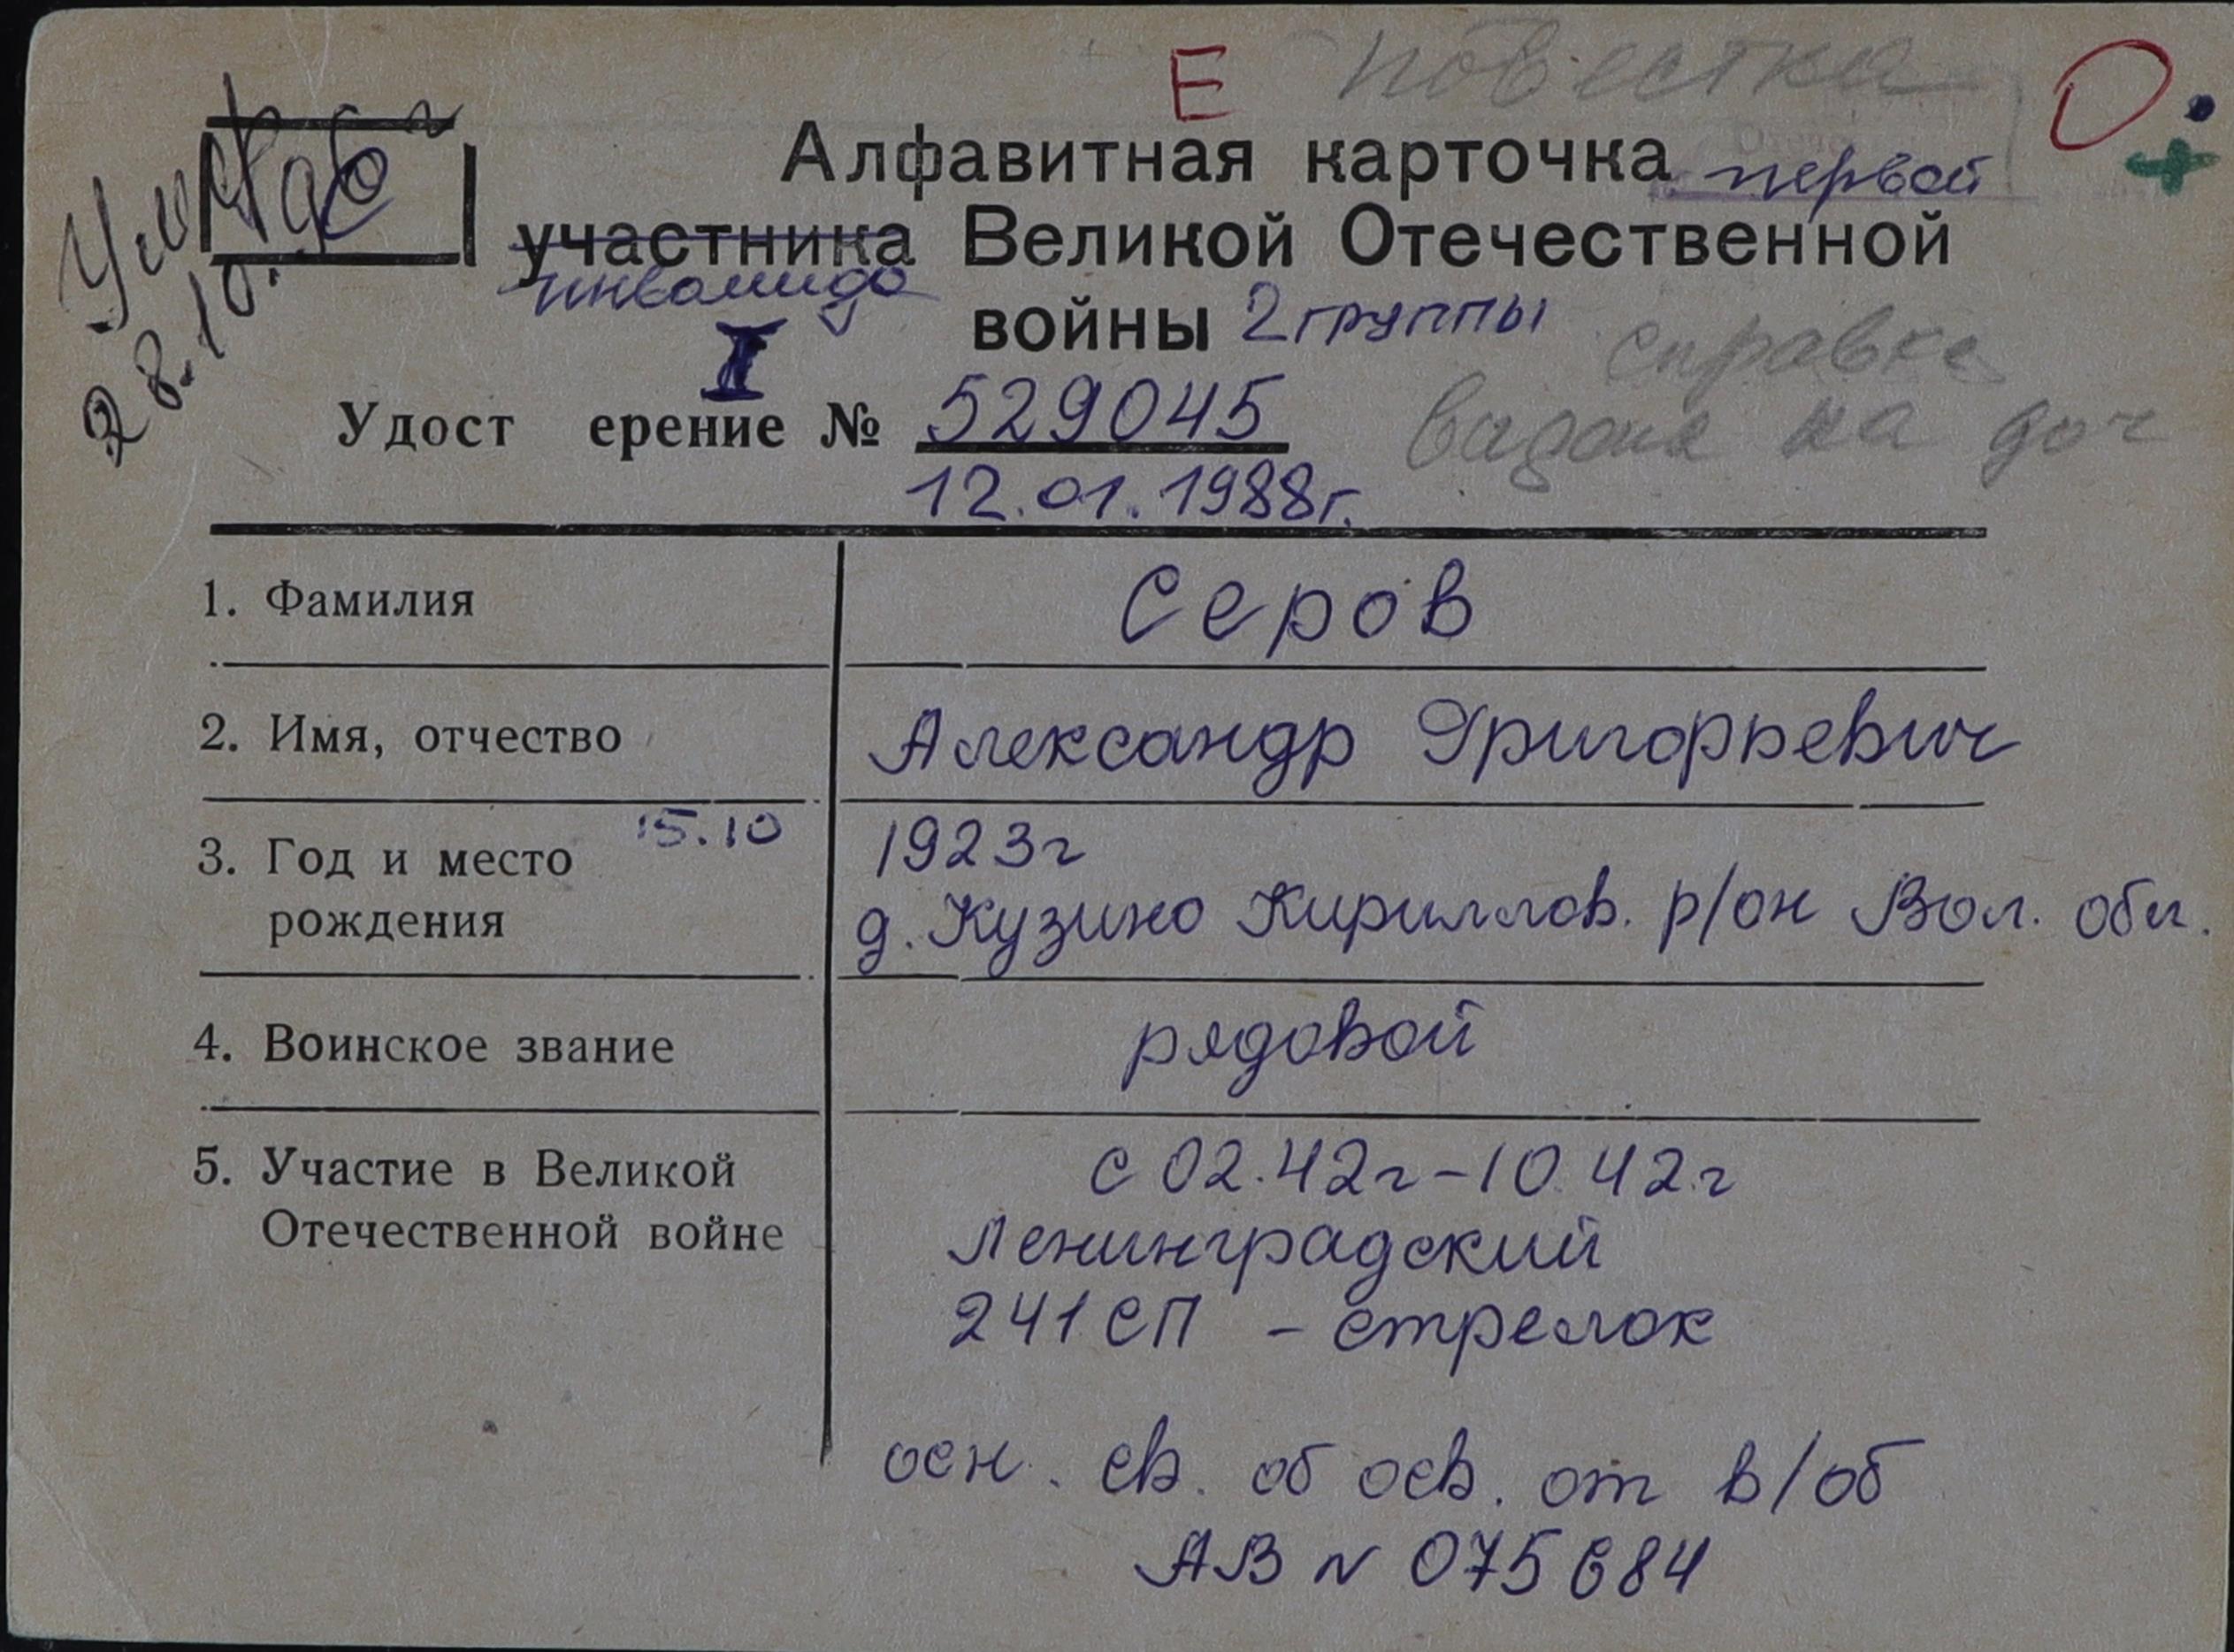 Е повестка О
Алфавитная карточка первой
участника Великой Отечественной
инвалида
войны 2 группы
справка
I
Удост ерение № 529045
на доч
12.01.1988г.
Умер
28.10.96г
1. Фамилия Серов
2. Имя, отчество Александр Григорьевич
3. Год и место 15.10 1923г
рождения д. Кузино Кириллов. р/он Вол. обл.
4. Воинское звание рядовой
5. Участие в Великой с 02.42г-10.42г
Отечественной войне Ленинградский
241 СП - стрелок
осн. св. об осв. от в/об
АВ N 075684